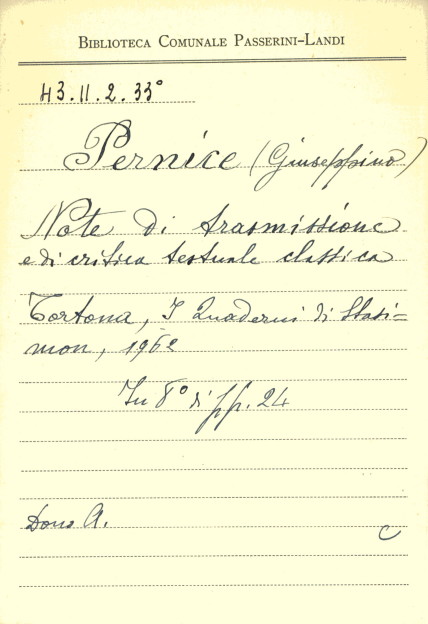 BIBLIOTECA COMUNALE PASSERINI-LANDI
43.II.2.33°
Pernice (Giuseppino)
Note di trasmissione
e di critica testuale classica
Tortona, I Quaderni di Stasi=
mon, 1962
In 8° di pp. 24
Dono A.
C